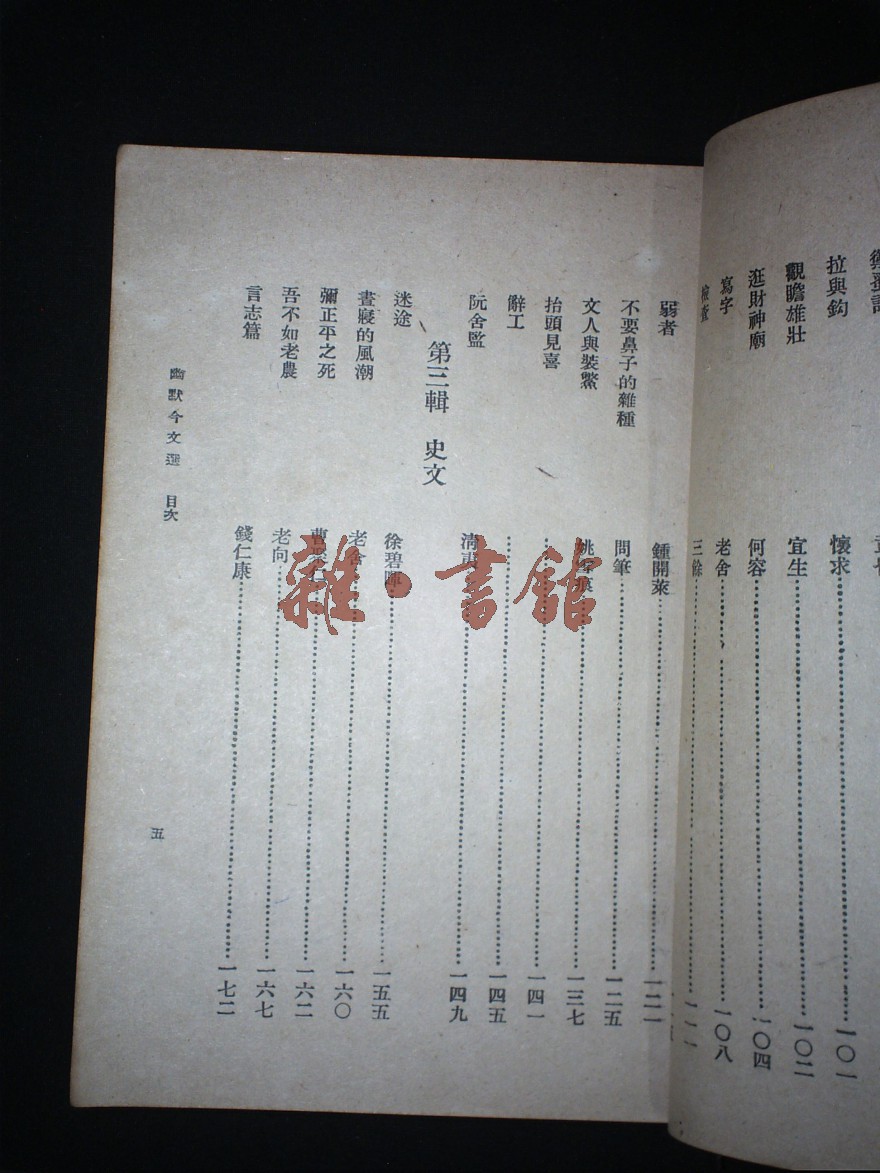 拉與鈎 懷求 一〇一
觀瞻雄壯 宜生 一〇二
逛財神廟 何容 一〇四
寫字 老舍 一〇八
檢查 三餘
弱者 鍾開萊 一二一
不要鼻子的雜種 問筆 一二五
文人與裝鱉 一三七
抬頭見喜 一四一
辭工 一四五
阮舍監 一四九
第三輯 史文
迷途 徐碧暉 一五五
晝寢的風潮 老舍 一六〇
彌正平之死 一六二
吾不如老農 老向 一六七
言志篇 錢仁康 一七二
幽默今文選 目次
五
雜·書館